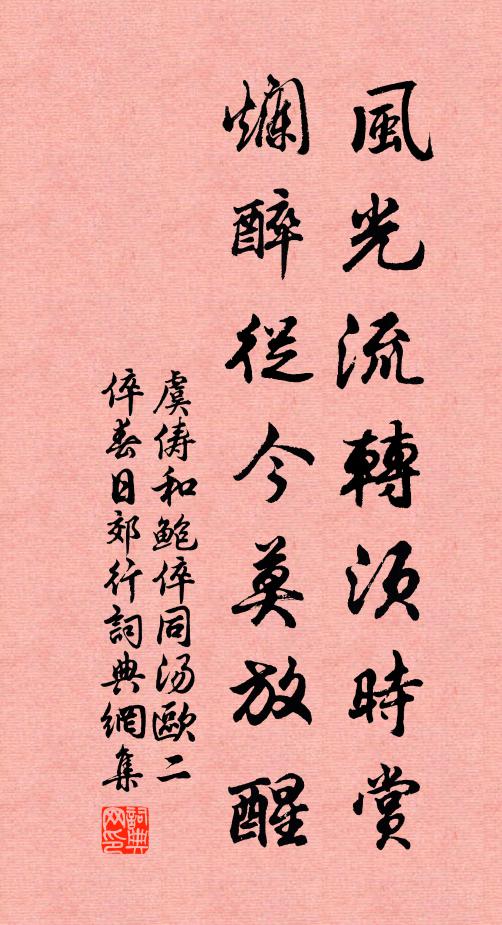 風光流轉須時賞
爛醉從今莫放醒
虞儔和鮑倅同湯歐二
倅春日郊行詞典網集
詞典网印